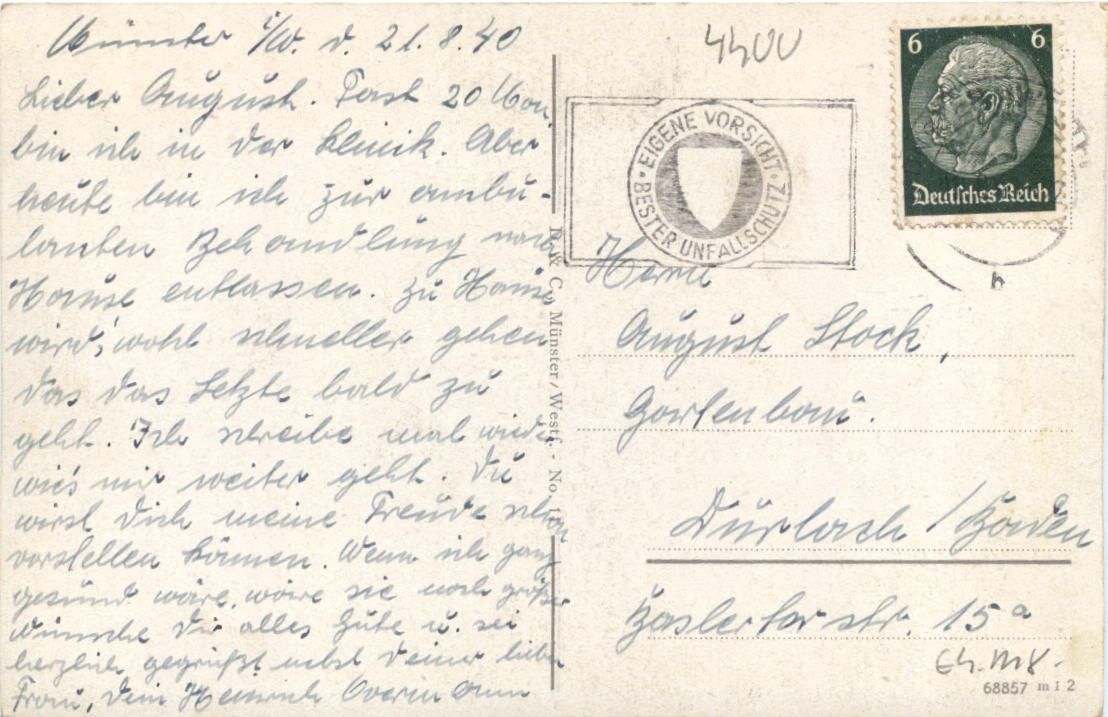 Münster i/W. d. 21.8.40
Lieber August. Fast 20 Mon.
bin ich in der Klinik. Aber
heute bin ich zur ambu-
lanten Behandlung nach
Hause entlassen. Zu Hause
wird, wohl schneller gehen
das das Letzte bald zu
geht. Ich schreibe mal wieder
wie's mir weiter geht. Du
wirst Dich meine Freude schon
vorstellen können. Wenn ich ganz
gesund wäre, wäre sie noch größer
Wünsche Dir alles Gute u. sei
herzlich gegrüßt nebst Deiner lieben
Frau, Dein Heinrich Overmann
Co., Münster/Westf. - No.
4400
EIGENE VORSICHT
BESTER UNFALLSCHUTZ
6 6
Deutsches Reich
h
Herrn
August Stock,
Gartenbau.
Durlach / Baden
Baslertorstr. 15a
68857 m I 2